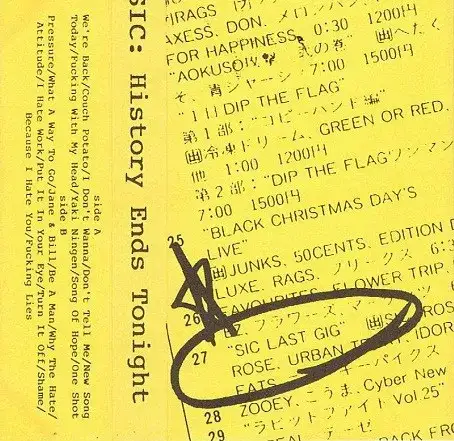 side A
We're Back/Couch Potato/I Don't Wanna/Don't Tell Me/New Song
Today/Fucking With My Head/Yaki Ningen/Song Of Hope/One Shot
side B
Pressure/What A Way To Go/Jane & Bill/Be A Man/Why The Hate/
Attitude/I Hate Work/Put It In Your Eye/Turn It Off/Shame/
Because I Hate You/Fucking Lies
SIC: History Ends Tonight
RAGS
AXESS, DON, メロンパン
FOR HAPPINESS 0:30 1200円
"AOKUSO 巻" へたく
そ、青ジャージ 7:00 1500円
"1日DIP THE FLAG"
第1部:"コピーバンド編"
冷凍ドリーム, GREEN OR RED,
他 1:00 1200円
第2部:"DIP THE FLAGワンマン
7:00 1500円
"BLACK CHRISTMAS DAY'S
25
LIVE"
JUNKS, 50CENTS, EDITION D
LUXE, RAGS, フリークス 6:3
FAVOURITES, FLOWER TRIP,
26
フラワーズ,
27
"SIC LAST GIG"
ROSE, URBAN
EATS ーパイクス
28
ZOOEY, こうま, Cyber New
"ラビットファイトVol.25"
29